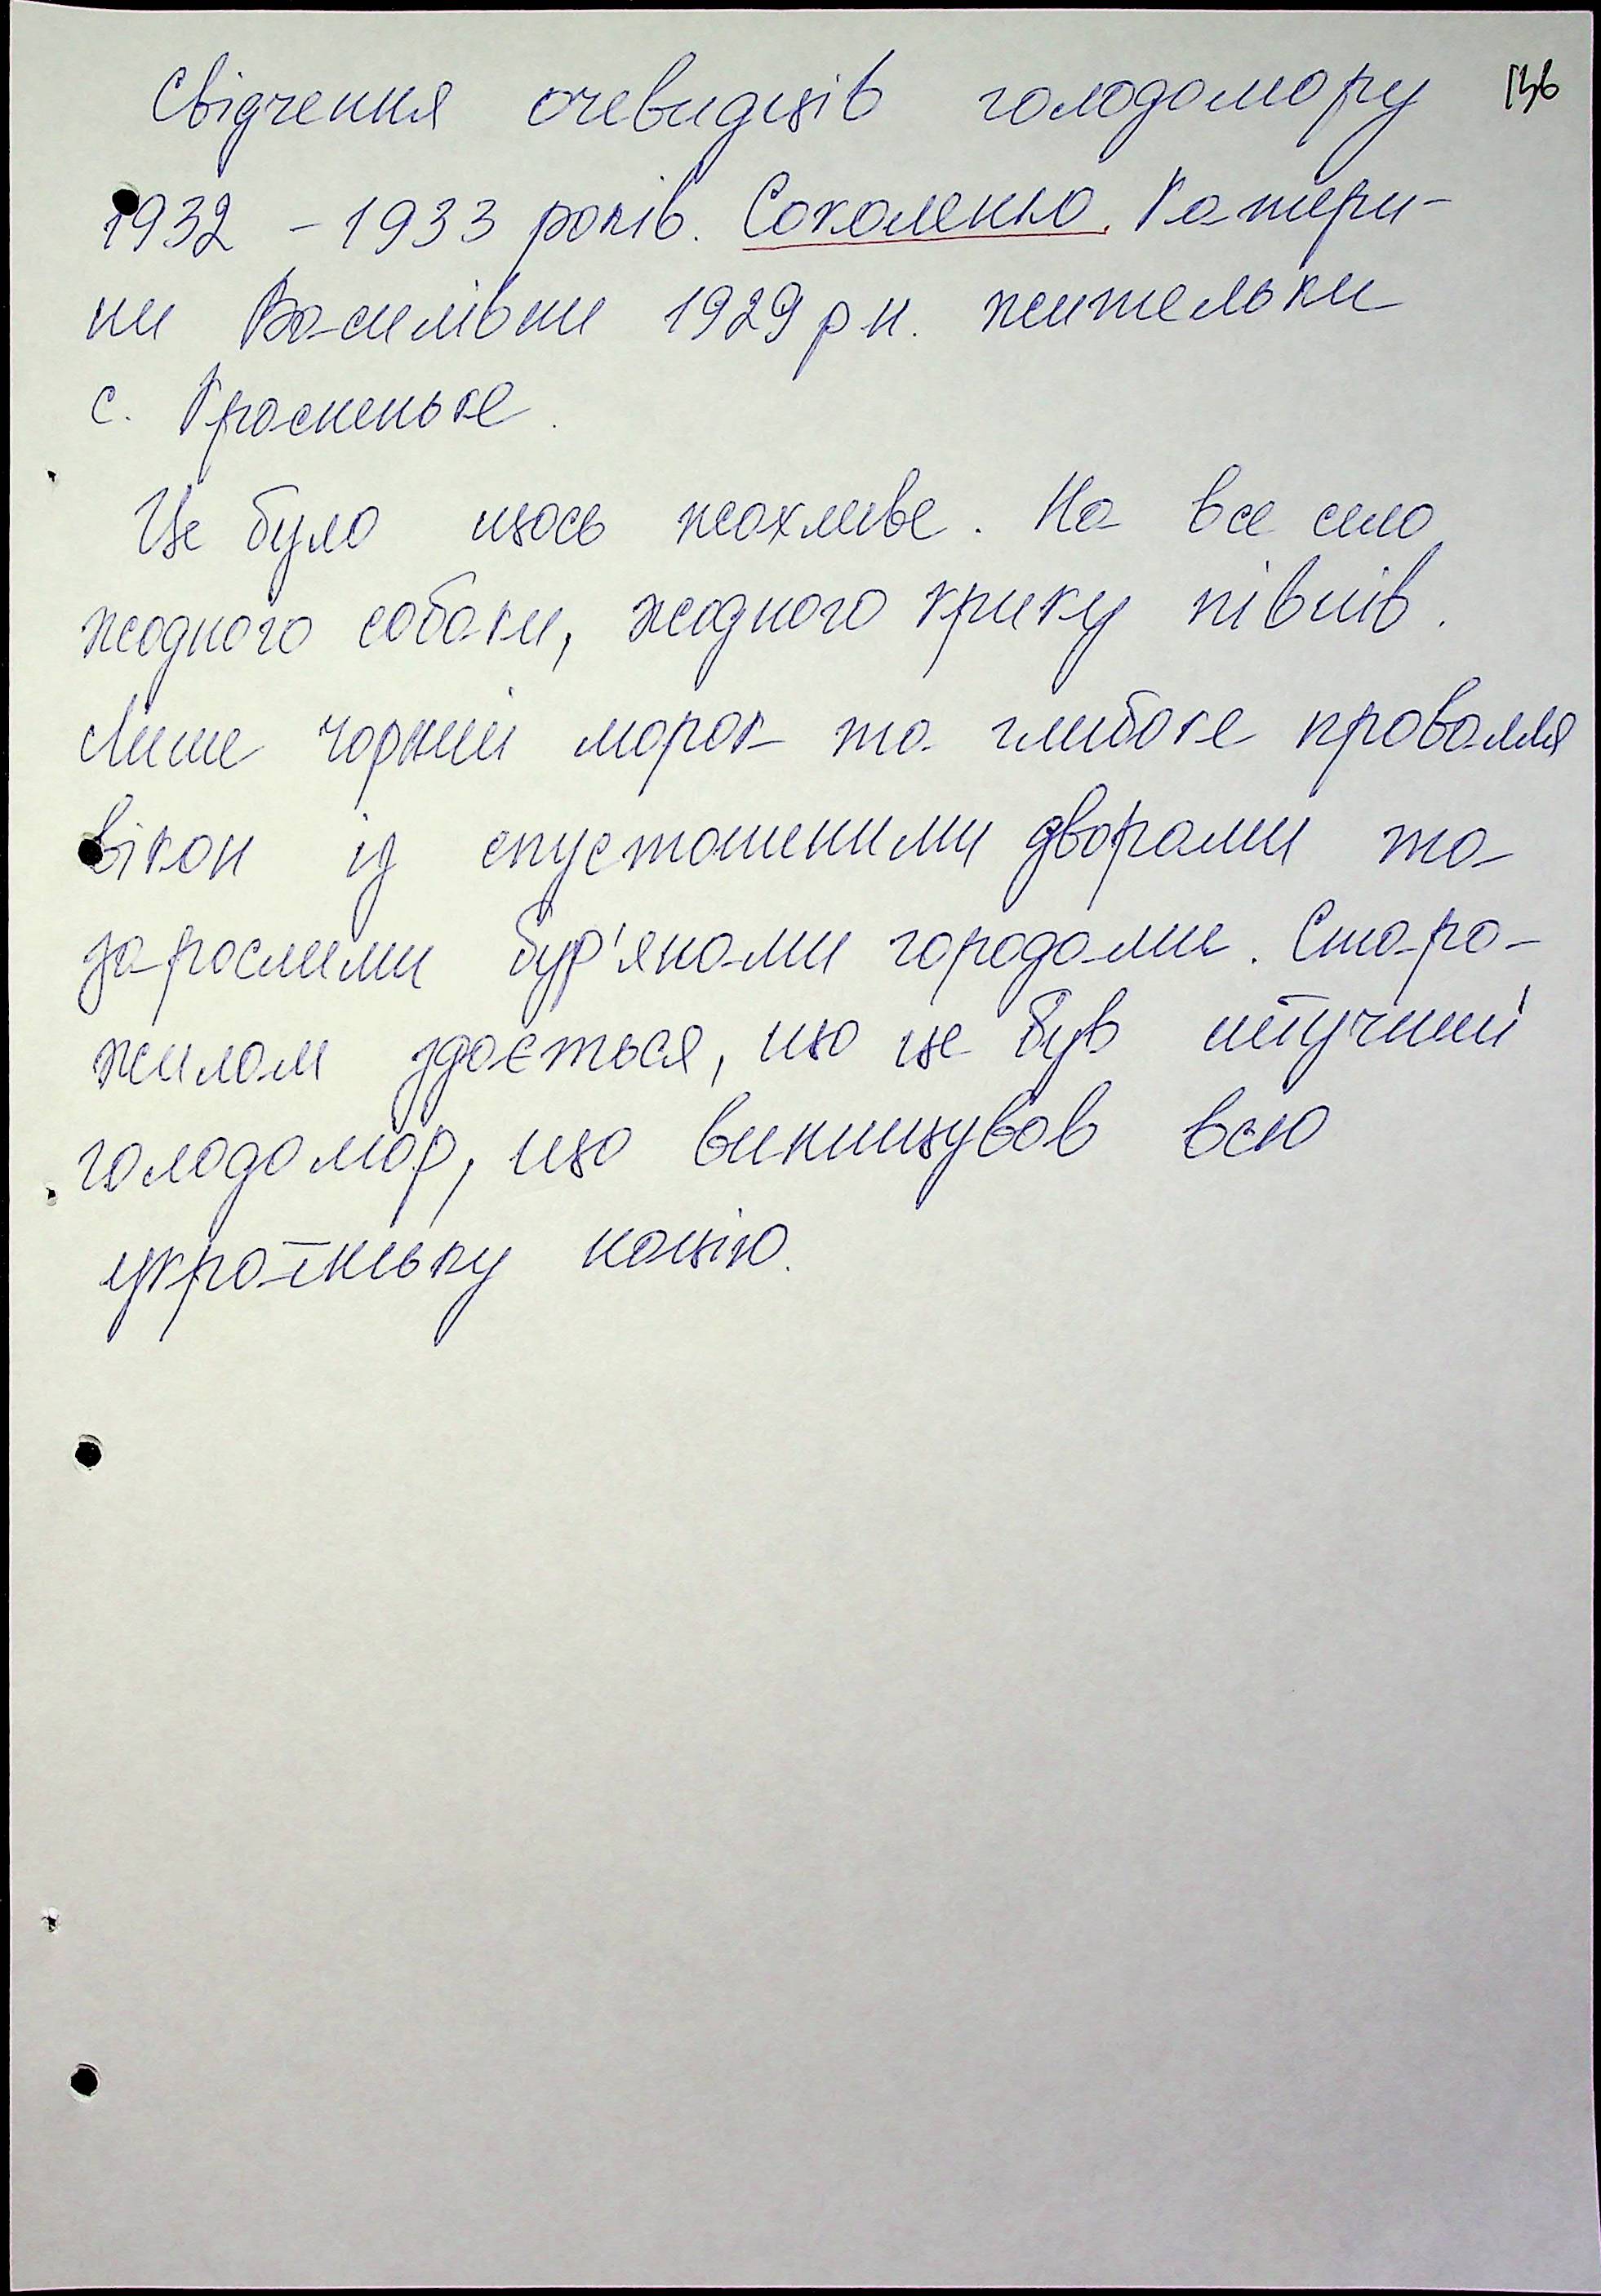 136
Свідчення очевидців голодомору
1932 - 1933 років. Соколенко Катери-
ни Василівни 1929 р н. жительки
с. Красненьке.
Це було щось жахливе. На все село
жодного собаки, жодного крику півнів.
Лише чорний морок та глибоке провалля
вікон із спустошеними дворами та
зарослими бур'янами городами. Старо-
жилам здається, що це був штучний
голодомор, що винищував всю
українську націю.